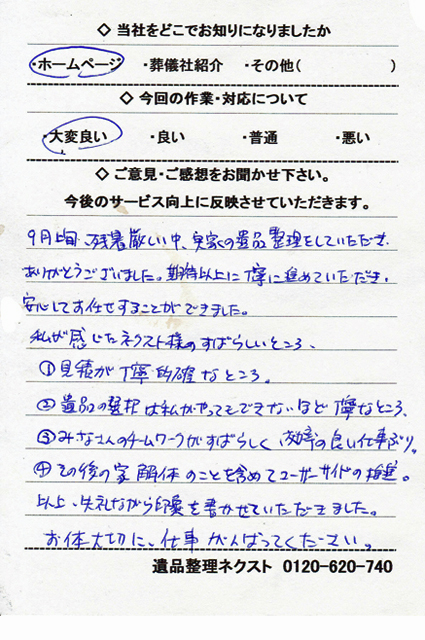 ◇ 当社をどこでお知りになりましたか
・ホームページ ・葬儀社紹介 ・その他( )
◇ 今回の作業・対応について
・大変良い ・良い ・普通 ・悪い
◇ ご意見・ご感想をお聞かせ下さい。
今後のサービス向上に反映させていただきます。
9月上旬、残暑厳しい中、実家の遺品整理をしていただき、
ありがとうございました。期待以上に丁寧に進めていただき、
安心してお任せすることができました。
私が感じたネクスト様のすばらしいところ、
①見積が丁寧、的確なところ。
②遺品の選択は私がやってもできないほど丁寧なところ、
③みなさんのチームワークがすばらしく、効率の良い仕事ぶり。
④その後の家解体のことを含めてユーザーサイドの
以上、失礼ながら印象を書かせていただきました。
お体大切に、仕事がんばってください。
遺品整理ネクスト 0120-620-740